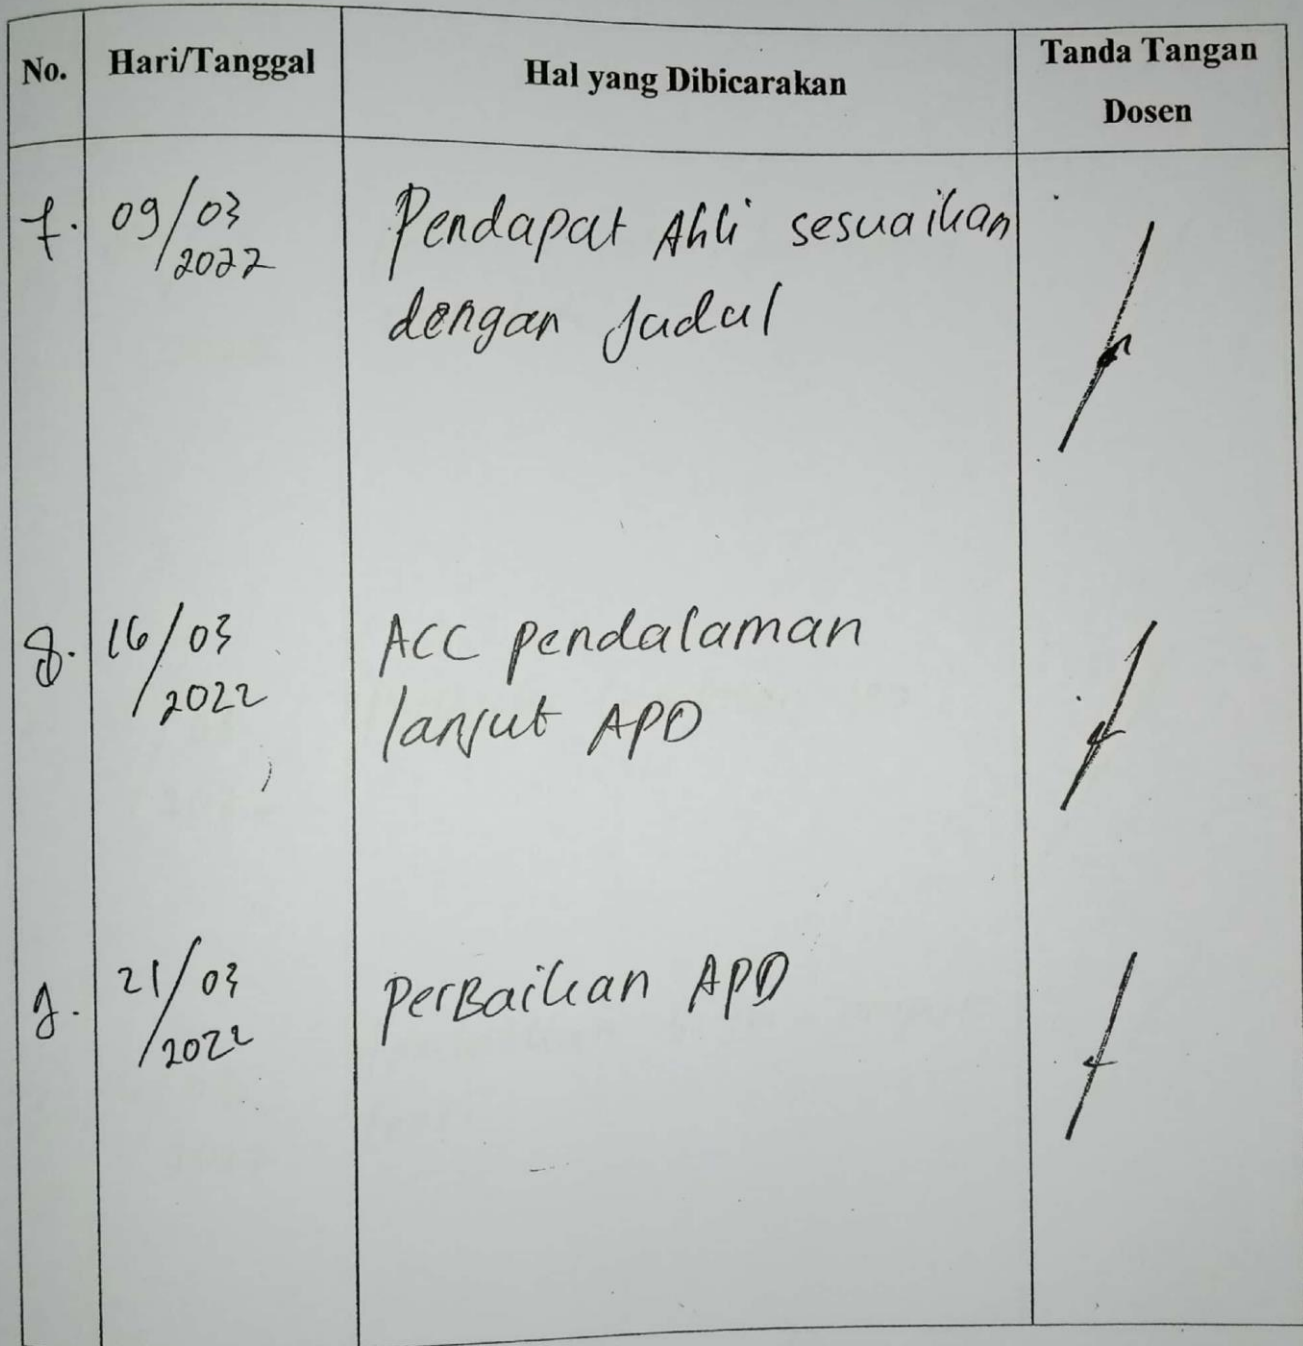 No. Hari/Tanggal Hal yang Dibicarakan Tanda Tangan
Dosen
7. 09/03 Pendapat Ahli sesuaikan
/2022 dengan Judul
8. 16/03 ACC pendalaman
/2022 lanjut APD
9. 21/03 PerBaikan APD
/2022